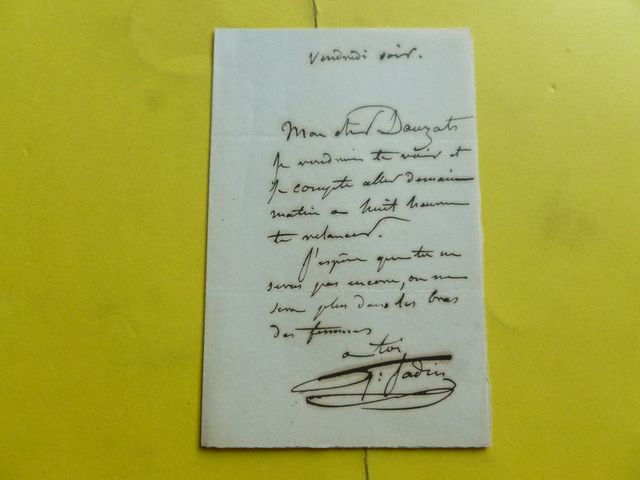 Vendredi soir.
Mon cher Dauzats
Je voudrais te voir et
Je compte aller demain
matin a huit heures
te relancer.
J'espère que tu ne
seras pas encore, ou ne
sera plus dans les bras
des femmes
a toi
G: Jadin